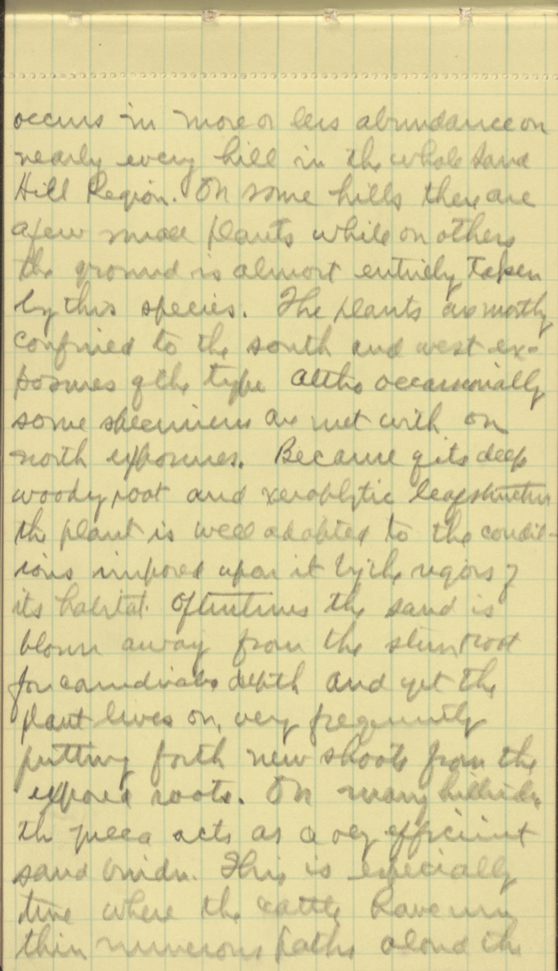 occurs in more or less abundance on
nearly every hill in the whole Sand
Hill Region. On some hills there are
a few small plants while on others
the ground is almost entirely taken
by this species. The plants are mostly
confined to the south and west ex-
posures of the type altho occasionally
some specimens are met with on
north exposures. Because of its deep
woody root and xerophytic leaf structure
the plant is well adapted to the condit-
ions imposed upon it by the rigors of
its habitat. Oftentimes the sand is
blown away from the stem root
for considerable depth and yet the
plant lives on, very frequently
putting forth new shoots from the
exposed roots. On many hillsides
the yucca acts as a very efficient
sand binder. This is especially
true where the cattle have run
thin numerous paths along the